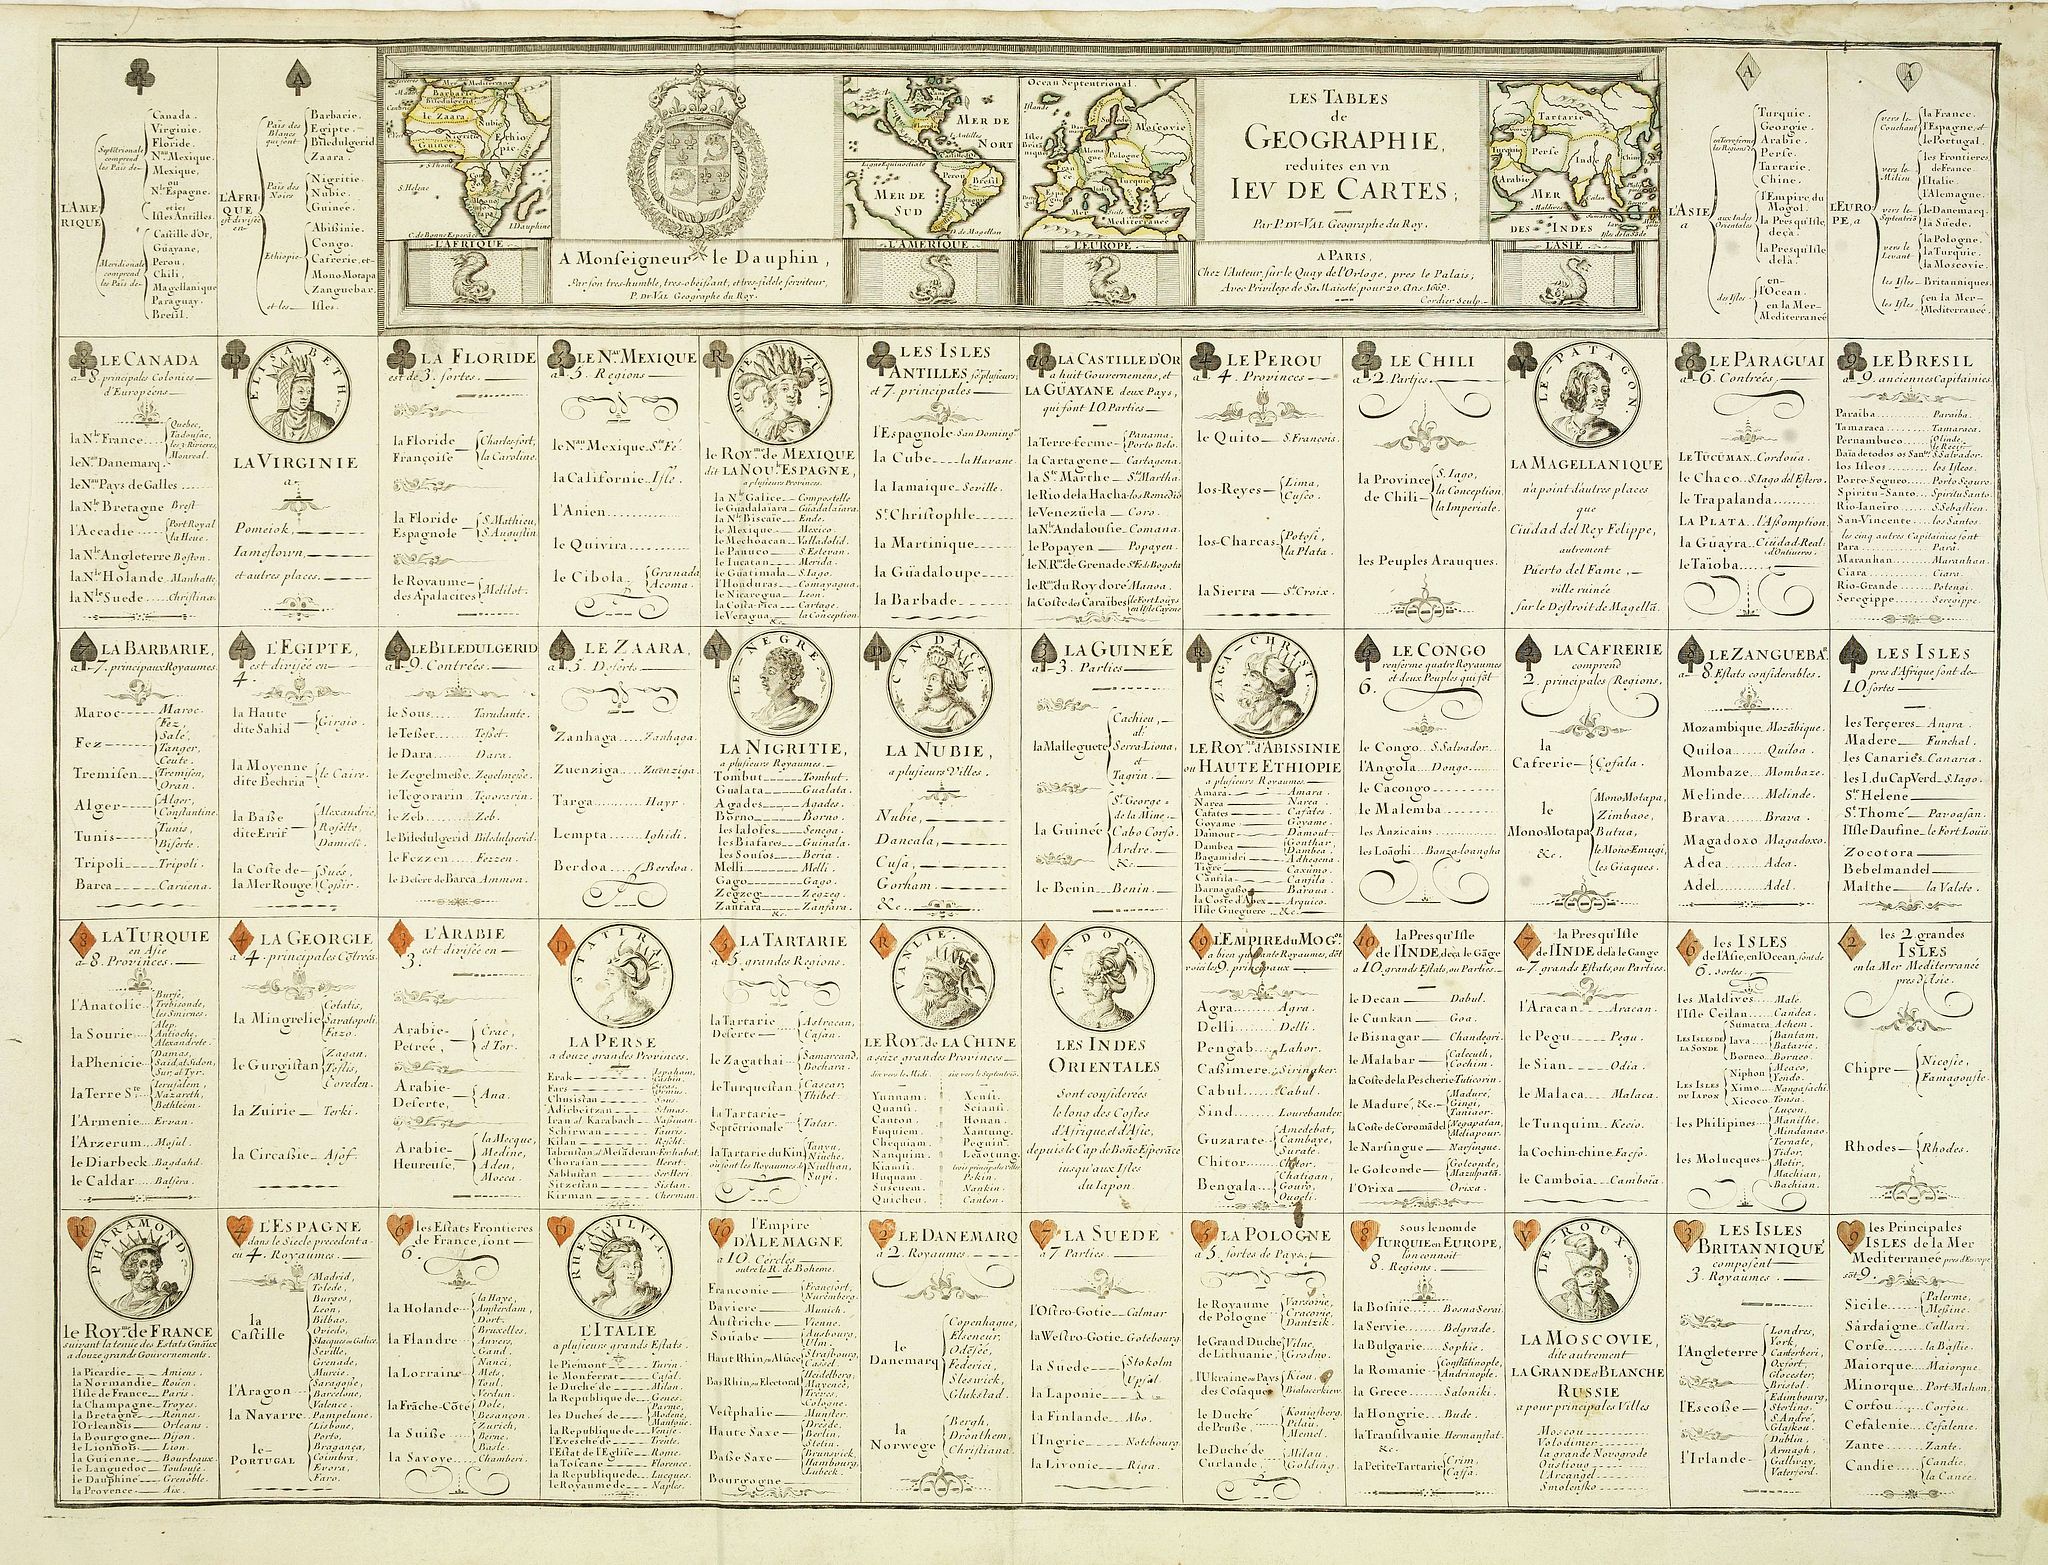 A
L'AMERIQUE
Septẽtrionale comprend les Païs de
Canada.
Virginie.
Floride.
N.au Mexique.
Mexique,
ou
N.le Espagne.
et les
Isles Antilles.
Meridionale comprend les Païs de
Castille d'Or,
Guayane,
Perou,
Chili,
Magellanique
Paraguay.
Bresil.
A
L'AFRIQUE,
est divisée en
Païs des Blancs qui sont
Barbarie.
Egipte.
Biledulgerid
Zaara.
Païs des Noirs
Nigritie.
Nubie.
Guinée.
Ethiopie
Abissinie.
Congo.
Cafrerie, et
Mono-Motapa
Zanguebar.
et les Isles.
L'AFRIQUE
A Monseigneur le Dauphin,
Par son tres-humble, tres-obeissant, et tres-fidele serviteur,
P. Du-Val Geographe du Roy.
MER DE NORT
MER DE SUD
L'AMERIQUE
Ocean Septentrional
L'EUROPE
LES TABLES
de
GEOGRAPHIE,
reduites en vn
IEV DE CARTES;
Par P. DU-VAL Geographe du Roy.
A PARIS,
Chez l'Auteur, sur le Quay de l'Orloge, pres le Palais;
Avec Privilege de Sa Maiesté, pour 20. Ans. 1669.
Cordier Sculp.
MER DES INDES
L'ASIE
A
L'ASIE a
en terre ferme les Regions de
Turquie.
Georgie.
Arabie.
Perse.
Tartarie.
Chine.
aux Indes Orientales
l'Empire du Mogol.
la Presqu'Isle, deça.
la Presqu'Isle delà.
des Isles
en l'Ocean.
en la Mer Mediterranée
A
L'EUROPE, a
vers le Couchant
la France.
l'Espagne, et
le Portugal.
vers le Milieu
les Frontieres de France.
l'Italie.
l'Alemagne.
vers le Septentriõ
le Danemarq.
la Suede.
vers le Levant
la Pologne.
la Turquie.
la Moscovie.
les Isles Britanniques.
les Isles en la Mer Mediterranée.
8 LE CANADA
a 8. principales Colonies
d'Europeens
la N.le France Quebec, Tadousac, les 3 Rivieres, Monreal.
le N.au Danemarq.
le N.au Païs de Galles
la N.le Bretagne Brest
l'Accadie Port Royal
la N.le Angleterre Boston.
la N.le Holande Manhatte
la N.le Suede Christina
D
ELISABETH.
LA VIRGINIE
a
Pomeiok,
Iamestown,
et autres places.
3 LA FLORIDE
est de 3. sortes.
la Floride Françoise Charles-fort, la Caroline.
la Floride Espagnole S. Mathieu, S. Augustin.
le Royaume des Apalacites Melilot.
5 LE N.au MEXIQUE
a 5. Regions
le N.au Mexique S.te Fé
la Californie Isle.
l'Anien
le Quivira
le Cibola Granada, Acoma.
R
MOTEZUMA.
le ROY.me de MEXIQUE
dit LA NOU.le ESPAGNE,
a plusieurs Provinces.
la N.le Galice Compostelle
le Guadalaiara Guadalaiara.
la N.le Biscaie Ende.
le Mexique Mexico.
le Mechoacan Valladolid.
le Panuco S. Estevan.
le Iucatan Merida.
le Guatimala S. Iago.
l'Honduras Comayagua.
le Nicaregua Leon.
la Costa-rica Cartage.
le Veragua la Conception
&c.
7 LES ISLES
ANTILLES sõt plusieurs;
et 7. principales
l'Espagnole San Domingo
la Cube la Havane.
la Iamaique Seville.
S.t Christophle
la Martinique
la Guadaloupe
la Barbade
10 LA CASTILLE D'OR
a huit Gouvernemens, et
LA GUAYANE deux Pays,
qui font 10. Parties
la Terre-ferme Panama. Porto Belo.
la Cartagene Cartagena.
la S.te Marthe S.ta Martha.
le Rio de la Hacha los Remedios
le Venezüela Coro.
la N.le Andalousie Comana.
le Popayen Popayen.
le N. R.me de Grenade S.te Fé de Bogota
le R.me du Roy doré Manoa.
la Coste des Caraïbes le Fort Loüys en l'Isle Cayene
4 LE PEROU
a 4. Provinces
le Quito S. Francois.
los-Reyes Lima, Cusco.
los-Charcas Potosi, la Plata.
la Sierra S.te Croix.
2 LE CHILI
a 2. Parties.
la Province de Chili S. Iago, la Conception, la Imperiale.
les Peuples Arauques.
V
LE-PATAGON.
LA MAGELLANIQUE
n'a point d'autres places
que
Ciudad del Rey Felippe,
autrement
Puerto del Fame,
ville ruinée
sur le Destroit de Magellã.
6 LE PARAGUAI
a 6. Contrées,
LE TUCUMAN Cordoüa.
le Chaco S. Iago del Estero.
le Trapalanda
LA PLATA l'Assomption.
la Guayra Ciudad-Real d'Ontiveros.
le Taioba
9 LE BRESIL
a 9. anciennes Capitainies.
Paraiba Paraiba.
Tamaraca Tamaraca.
Pernambuco Olinde, le Recif.
Baia de todos os San.tos S. Salvador.
los Ileos los Isleos.
Porto-Seguro Porto Seguro.
Spiritu-Santo Spiritu Santo
Rio-Ianeiro S. Sebastien.
San-Vincente los Santos.
les cinq autres Capitainies sont
Para Parà.
Maranhan Maranhan.
Ciara Ciara.
Rio-Grande Potengi.
Seregippe Seregippe.
7 LA BARBARIE,
a 7. principaux Royaumes.
Maroc Maroc.
Fez Fez, Salé, Tanger, Ceute.
Tremisen Tremisen, Oran.
Alger Alger, Constantine.
Tunis Tunis, Biserte.
Tripoli Tripoli.
Barca Caruena.
4 L'EGIPTE,
est divisée en
4.
la Haute dite Sahid Girgio.
la Moyenne dite Bechria le Caire.
la Basse dite Errif Alexandrie, Rosette, Damiete.
la Coste de la Mer Rouge Sués, Cossir.
9 LE BILEDULGERID
a 9. Contrées.
le Sous Tarudante.
le Tesset Tesset.
le Dara Dara.
le Zegelmesse Zegelmesse.
le Tegorarin Tegorarin.
le Zeb Zeb.
le Biledulgerid Biledulgerid.
le Fezzen Fezzen.
le Desert de Barca Ammon.
5 LE ZAARA,
a 5. Deserts
Zanhaga Zanhaga.
Zuenziga Zuenziga.
Targa Hayr.
Lempta Ighidi.
Berdoa Berdoa.
V
LE-NEGRE.
LA NIGRITIE,
a plusieurs Royaumes.
Tombut Tombut.
Gualata Gualata.
Agades Agades.
Borno Borno.
les Ialofes Senega.
les Biafares Guinala.
les Sousos Beria.
Melli Melli.
Gago Gago.
Zegzeg Zegzeg.
Zanfara Zanfara.
&c.
D
CANDACE.
LA NUBIE,
a plusieurs Villes.
Nubie,
Dancala,
Cusa,
Gorham.
&c.
3 LA GUINÉE
a 3. Parties
la Malleguete Cachieu, ali Serra-Liona, et Tagrin.
la Guinée S.t George de la Mine. Cabo Corso. Ardre. &c.
le Benin Benin.
R
ZAGA-CHRIST.
LE ROY.me d'ABISSINIE
ou HAUTE ETHIOPIE
a plusieurs Royaumes.
Amara Amara.
Narea Narea.
Cafates Cafates.
Goyame Goyame.
Damout Damout.
Dambea Gonthar, Dambea.
Bagamidri Adhegena.
Tigre Caxumo.
Canfila Canfila.
Barnagasse Baroua.
la Coste d'Abex Arquico.
l'Isle Gueguere &c.
6 LE CONGO
renferme quatre Royaumes
et deux Peuples qui sõt
6.
le Congo S. Salvador.
l'Angola Dongo.
le Cacongo
le Malemba
les Anzicains
les Loanghi Banza-loangha
2 LA CAFRERIE
comprend
2. principales Regions.
la Cafrerie Cofala.
le Mono-Motapa &c. MonoMotapa, Zimbaoe, Butua, le Mono-Emugi, les Giaques.
8 LE ZANGUEBAR.
a 8. Estats considerables.
Mozambique Mozãbique.
Quiloa Quiloa.
Mombaze Mombaze.
Melinde Melinde.
Brava Brava.
Magadoxo Magadoxo.
Adea Adea.
Adel Adel.
LES ISLES
pres d'Afrique sont de
10. sortes
les Terçeres Angra.
Madere Funchal.
les Canariés Canaria.
les I. du Cap Verd S. Iago.
S.te Helene
S.t Thomé Pavoasan.
l'Isle Daufine le Fort Loüis
Zocotora
Bebelmandel
Malthe la Valete.
8 LA TURQUIE
en Asie
a 8. Provinces.
l'Anatolie Burse, Trebisonde, les Smirnes.
la Sourie Alep, Antioche, Alexandrete.
la Phenicie Damas, Said al Sidon, Sur al Tyr.
la Terre S.te Ierusalem, Nazareth, Bethleem.
l'Armenie Ervan.
l'Arzerum Mosul.
le Diarbeck Bagdahd.
le Caldar Balsera.
4 LA GEORGIE
a 4. principales Cõtrées.
la Mingrelie Cotatis, Savatopoli, Fazo.
le Gurgistan Zagan, Teflis, Coreden.
la Zuirie Terki.
la Circassie Asof.
3 L'ARABIE
est divisée en
3.
Arabie-Petreé, Crac, el Tor.
Arabie-Deserte, Ana.
Arabie-Heureuse, la Mecque, Medine, Aden, Mocca.
D
STATIRA.
LA PERSE
a douze grandes Provinces.
Erak Ispaham, Casbin.
Fars Siras, Ormus.
Chusistan Sous.
Adirbeitzan Selmas.
Iran al Karabach Nassivan.
Schirwan Tauris.
Kilan Rescht.
Tabristan al Mesanderan Ferhabat.
Chorasan Herat.
Sablustan Sertteri
Sitzestan Sistan.
Kirman Cherman.
5 LA TARTARIE
a 5. grandes Regions.
la Tartarie Deserte Astracan, Casan.
le Zagathai Samarcand, Bochara.
le Turquestan Cascar, Thibet.
la Tartarie Septẽtrionale Tatar.
la Tartarie du Kin où sont les Royaumes de Tanyu, Niuche, Niulhan, Yupi.
R
VANLIE.
LE ROY.me de LA CHINE
a seize grandes Provinces
dix vers le Midi. six vers le Septentriõ.
Yunnam. Xensi.
Quansi. Sciansi.
Canton. Honan.
Fuquiem. Xantung.
Chequiam. Pequin.
Nanquim. Leaotung.
Kiansi. trois principales villes
Huquam. Pekin.
Suscuem. Nankin.
Quicheu. Canton.
V
L'INDOU.
LES INDES
ORIENTALES
Sont considerées
le long des Costes
d'Afrique, et d'Asie,
depuis le Cap de Bõne Espérãce
iusqu'aux Isles
du Iapon.
9 L'EMPIRE du MOG.ol
a bien quarante Royaumes, dõt
voici les 9. principaux
Agra Agra.
Delli Delli.
Pengab Lahor.
Cassimere Siringker.
Cabul Cabul.
Sind Lourebander.
Guzarate Amedebat, Cambaye, Surate.
Chitor Chitor.
Bengala Chatigan, Gouro, Ougeli.
10 la Presqu'Isle
de l'INDE deça le Gãge
a 10. grands Estats, ou Parties.
le Decan Dabul.
le Cunkan Goa.
le Bisnagar Chandegri.
le Malabar Calecuth, Cochim.
la Coste de la Pescherie Tuticorin.
le Maduré, &c. Maduré, Gingi, Taniaor.
la Coste de Coromãdel Negapatan, Meliapour.
le Narsingue Narsingue.
le Golconde Golconde, Mazulpatã.
l'Orixa Orixa.
7 la Presqu'Isle
de l'INDE delà le Gange
a 7. grands Estats, ou Parties.
l'Aracan Aracan.
le Pegu Pegu.
le Sian Odia.
le Malaca Malaca.
le Tunquim Kecio.
la Cochin-chine Facfo.
la Camboia Camboïa.
6 les ISLES
de l'Asie, en l'Ocean, sont de
6. sortes.
les Maldives Male.
l'Isle Ceilan Candea.
LES ISLES DE LA SONDE Sumatra Achem. Iava Bantam, Batavie. Borneo Borneo.
LES ISLES DU IAPON Niphon Meaco, Yendo. Ximo Nangasachi. Xicoco Tonsa.
les Philipines Luçon, Manilhe, Mindanao.
les Molucques Ternate, Tidor, Motir, Machian, Bachian.
2 les 2 grandes
ISLES
en la Mer Mediterranée
pres d'Asie.
Chipre Nicosie, Famagouste.
Rhodes Rhodes.
R
PHARAMOND.
le ROY.me de FRANCE
suivant la tenue des Estats Gnãux
a douze grands Gouvernements.
la Picardie Amiens.
la Normandie Roüen.
l'Isle de France Paris.
la Champagne Troyes.
la Bretagne Rennes.
l'Orleanois Orleans.
la Bourgogne Dijon.
le Lionnois Lion.
la Guienne Bourdeaux
le Languedoc Toulouse.
le Dauphine Grenoble.
la Provence Aix.
4 L'ESPAGNE
dans le Siecle precedent a
eu 4. Royaumes.
la Castille Madrid, Tolede, Burgos, Leon, Bilbao, Oviedo, S. Iacques en Galice. Seville, Grenade, Murcie.
l'Aragon Saragosse, Barcelone, Valence.
la Navarre Pampelune.
le PORTUGAL Lisbone, Porto, Bragança, Coimbra, Evora, Faro.
6 les Estats Frontieres
de France, sont
6.
la Holande la Haye, Amsterdam, Dort.
la Flandre Bruxelles, Anvers, Gand.
la Lorraine Nanci, Mets, Toul, Verdun.
la Frãche-Côte Dole, Besançon.
la Suisse Zurich, Berne, Basle.
la Savoye Chamberi.
D
RHEA-SILVIA.
L'ITALIE
a plusieurs grands Estats.
le Piemont Turin.
le Monferrat Casal.
le Duché de Milan.
la Republique de Genes.
les Duches de Parme, Modene, Mantoüe.
la Republique de Venise.
l'Evesché de Trente.
l'Estat de l'Eglise Rome.
la Toscane Florence.
la Republique de Lucques.
le Royaume de Naples.
10 l'Empire
D'ALEMAGNE
a 10. Cercles
outre le R. de Boheme.
Franconie Francfort, Nuremberg.
Baviere Munich.
Austriche Vienne.
Soüabe Ausbourg, Ulm.
Haut Rhin, ou Alsace Strasbourg, Cassel.
Bas Rhin, ou Electoral Heidelberg, Mayence, Treves, Cologne.
Vestphalie Munster.
Haute Saxe Dresde, Berlin, Stetin.
Basse Saxe Brunswick, Hambourg, Lubeck.
Bourgogne
2 LE DANEMARQ
a 2. Royaumes.
le Danemarq Copenhague, Elseneur, Odesée, Federici, Sleswick, Glukstad.
la Norwege Bergh, Drõnthem, Christiana.
7 LA SUEDE
a 7 Parties.
l'Ostro-Gotie Calmar
la Westro-Gotie Gotebourg
la Suede Stokolm, Upsal.
la Laponie
la Finlande Abo.
l'Ingrie Notebourg
la Livonie Riga.
5 LA POLOGNE
a 5. sortes de Pays,
le Royaume de Pologne Varsovie, Cracovie, Dantzik.
le Grand Duche de Lithuanie Vilne, Grodno.
l'Ukraine ou Pays des Cosaque Kiou, Bialocerkiew.
le Duché de Prusse, Konigsberg, Pilau, Memel.
le Duché de Curlande Milau, Golding.
8 sous le nom de
TURQUIE en EUROPE,
l'on connoit
8. Regions.
la Bosnie Bosna Serai.
la Servie Belgrade.
la Bulgarie Sophie.
la Romanie Constãtinople, Andrinople.
la Grece Saloniki.
la Hongrie Bude.
la Transilvanie &c. Hermanstat.
la Petite Tartarie Crim, Caffa.
V
LE-ROUX.
LA MOSCOVIE,
dite autrement
LA GRANDE et BLANCHE
RUSSIE
a pour principales Villes
Moscou
Volodimer
la grande Novogrode
Oustioug
l'Arcangel
Smolensko
3 LES ISLES
BRITANNIQUES
composent
3. Royaumes.
l'Angleterre Londres, York, Cantorberi, Oxfort, Glocester, Bristol.
l'Escosse Edimbourg, Sterling, S. André, Glaskou.
l'Irlande Dublin, Armagh, Galliway, Vaterford.
9 les Principales
ISLES de la Mer
Mediterranée pres d'Europe
sõt 9.
Sicile Palerme, Messine.
Sardaigne Callari.
Corse la Bastie.
Maiorque Maiorque.
Minorque Port-Mahon.
Corfou Corfou.
Cefalenie Cefalenie.
Zante Zante.
Candie Candie, la Canée.